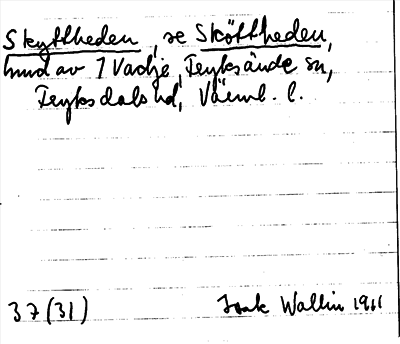 Skyttheden, se Sköttheden,
hmd av 1 Vadje, Fryksände sn,
Fryksdals hd, Värml. l.
37 (31) Isak Wallin 1911